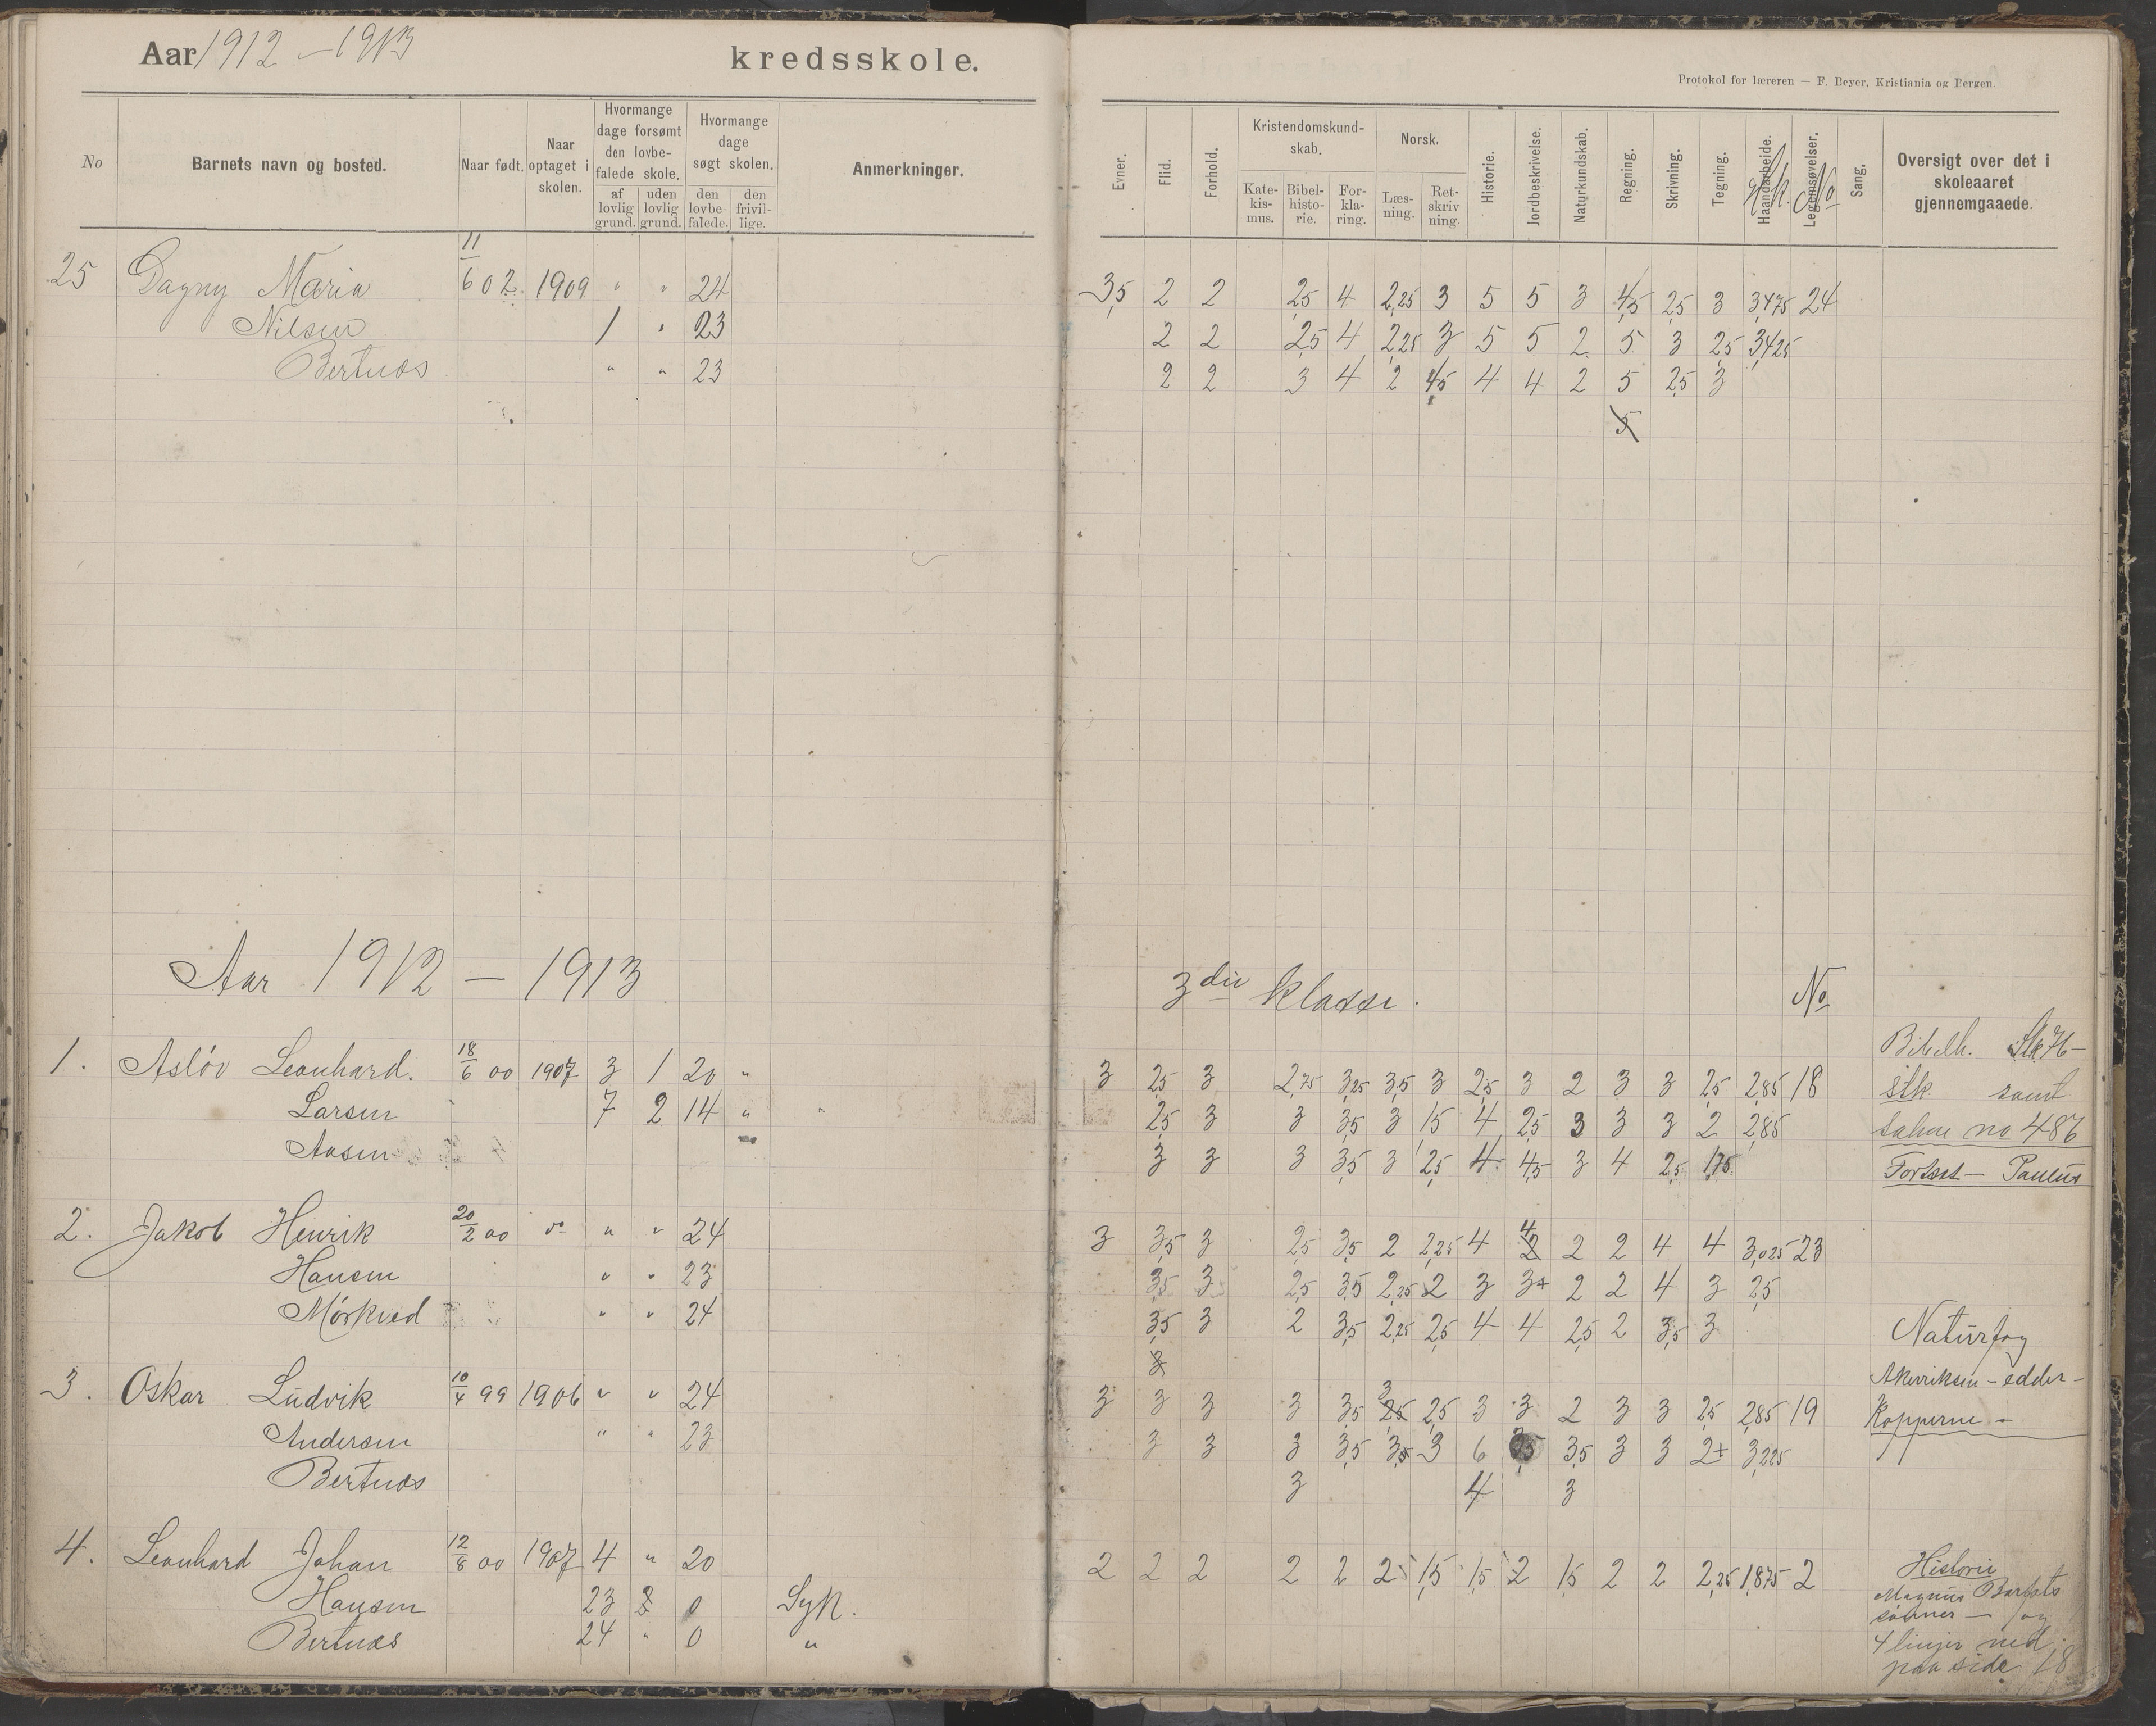 Aar 1912 – 1913
kredsskole.
Protokol for læreren — F. Beyer, Kristiania og Bergen.
No
Barnets navn og bosted.
Naar født.
Naar optaget i skolen.
Hvormange dage forsømt den lovbefalede skole.
af lovlig grund.
uden lovlig grund.
Hvormange dage søgt skolen.
den lovbefalede.
den frivillige.
Anmerkninger.
Evner.
Flid.
Forhold.
Kristendomskundskab.
Katekismus.
Bibelhistorie.
Forklaring.
Norsk.
Læsning.
Retskrivning.
Historie.
Jordbeskrivelse.
Naturkundskab.
Regning.
Skrivning.
Tegning.
Haandarbeide.
Hk.
Legemsøvelser.
No
Sang.
Oversigt over det i skoleaaret gjennemgaaede.
25 Dagny Maria 11/6 02. 1909 " " 24 3,5 2 2 2,5 4 2,25 3 5 5 3 4,5 2,5 3 3,475 24
Nilsen 1 " 23 2 2 2,5 4 2,25 3 5 5 2 5 3 2,5 3,425
Bertnæs " " 23 2 2 3 4 2 4,5 4 4 2 5 2,5 3
5
Aar 1912 – 1913
3die klasse.
No
1. Asløv Leonhard. 18/6 00 1907 3 1 20 " 3 2,5 3 2,75 3,25 3,5 3 2,5 3 2 3 3 2,5 2,85 18
Larsen 7 2 14 " " 2,5 3 3 3,5 3 1,5 4 2,5 3 3 3 2 2,85
Aasen 3 3 3 3,5 3 2,5 4 4,5 3 4 2,5 1,75
Bibelh.
stk samt
salme no 486
Fortsat – Paulus
2. Jakob Henrik 20/2 00 do " " 24 3 3,5 3 2,5 3,5 2 2,25 4 4 2 2 2 4 4 3,025 23
Hansen " " 23 3,5 3 2,5 3,5 2,25 2 3 3+ 2 2 4 3 2,5
Mørkved " " 24 3,5 3 2 3,5 2,25 2,5 4 4 2,5 2 3,5 3
Naturfag
3. Oskar Ludvik 10/4 99 1906 " " 24 3 3 3 3 3,5 3 2,5 2,5 3 3 2 3 3 2,5 2,85 19
Andersen " " 23 3 3 3 3,5 3,5 3 6 3,5 3 3 2+ 3,225
Bertnæs 3 4 3
edder-
Kopperne –
4. Leonhard Johan 12/8 00 1907 4 " 20 2 2 2 2 2 2 1,5 1,5 2 1,5 2 2 2,25 1,875 2
Hansen 23 0 Syk.
Bertnæs 24 " 0 "
Historie
Magnus Barfots
sønner – og
4 linjer ned
paa side 18